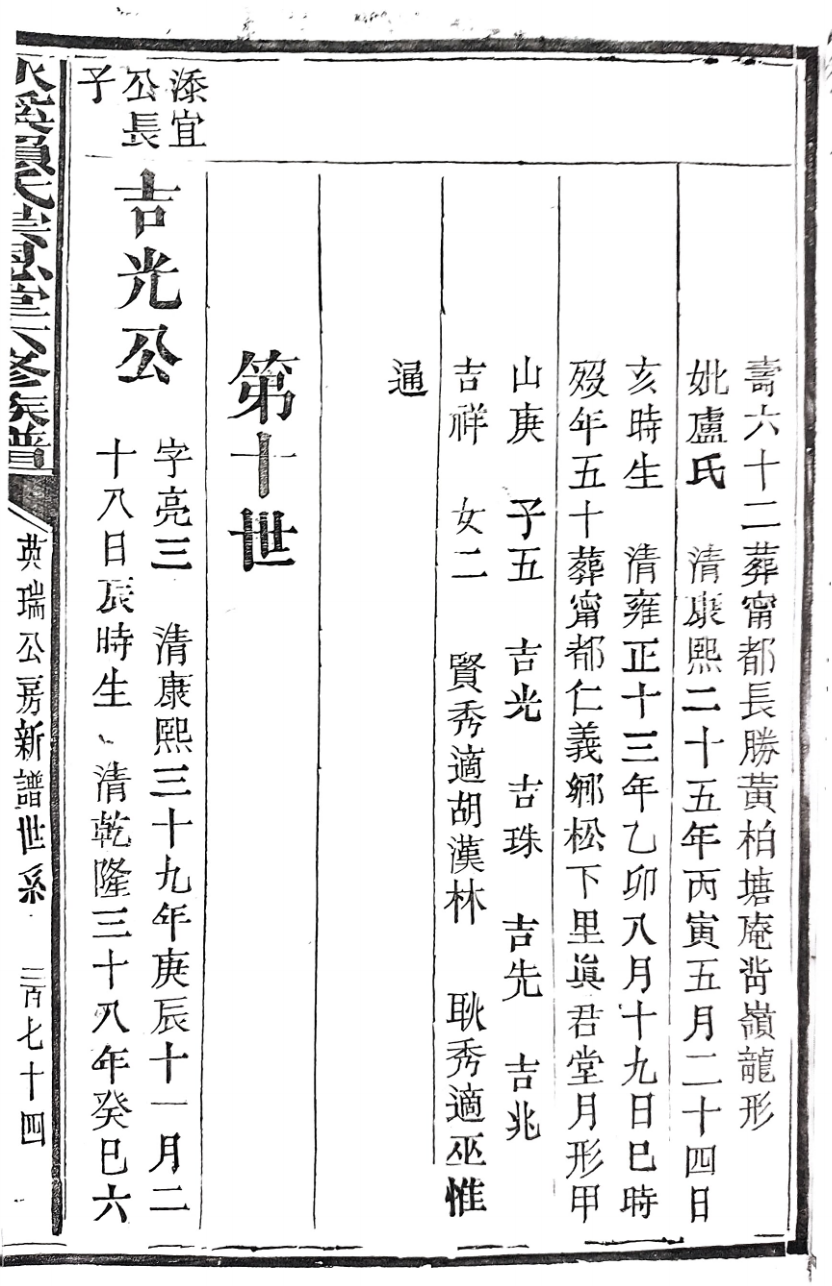 壽六十二葬甯都長勝黃柏塘庵背嶺龍形
妣盧氏 清康熙二十五年丙寅五月二十四日
亥時生 清雍正十三年乙卯八月十九日巳時
歿年五十葬甯都仁義鄉松下里眞君堂月形甲
山庚 子五 吉光 吉珠 吉先 吉兆
吉祥 女二 賢秀適胡漢林 耿秀適巫惟
通
第十世
添宜
公長
子
吉光公
字亮三 清康熙三十九年庚辰十一月二
十八日辰時生、清乾隆三十八年癸巳六
氏崇
六修族譜
英瑞公房新譜世系
三百七十四